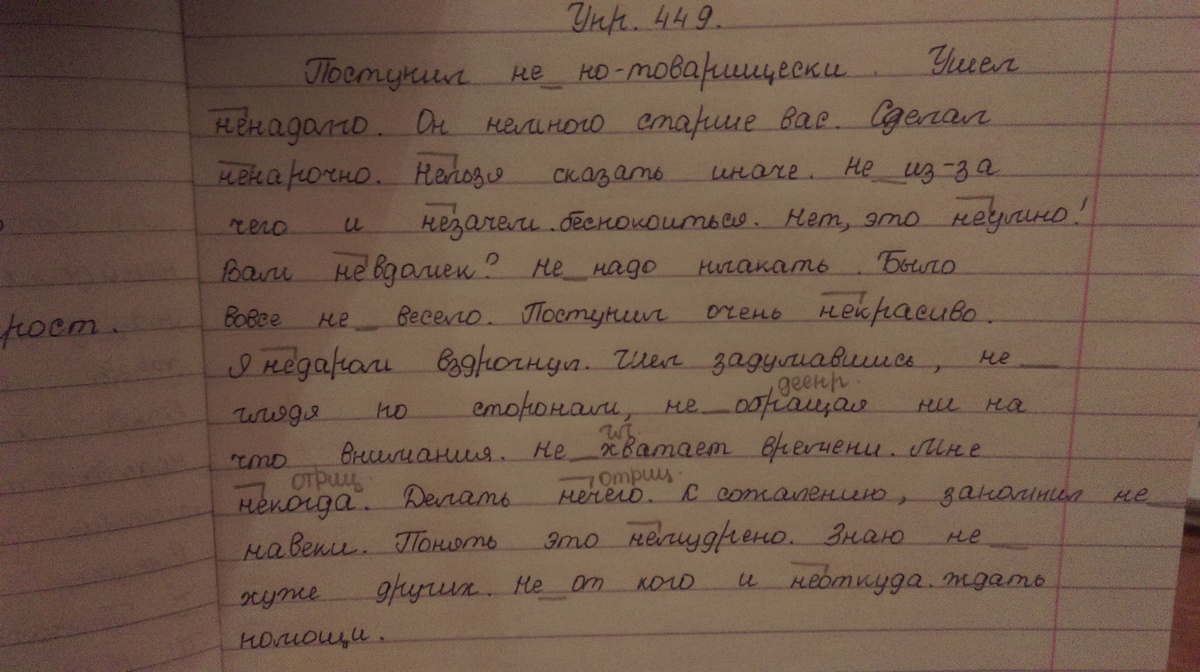 Упр. 449.
Поступил не по-товарищески. Ушел
ненадолго. Он немного старше вас. Сделал
ненарочно. Нельзя сказать иначе. Не из-за
чего и незачем беспокоиться. Нет, это неумно!
Вам невдомек? Не надо плакать. Было
рост. вовсе не весело. Поступил очень некрасиво.
Я недаром вздрогнул. Шел задумавшись, не
деепр.
глядя по сторонам, не обращая ни на
гл.
что внимания. Не хватает времени. Мне
отриц. отриц.
некогда. Делать нечего. К сожалению, запомнил не
навеки. Понять это немудрено. Знаю не
хуже других. Не от кого и неоткуда ждать
помощи.